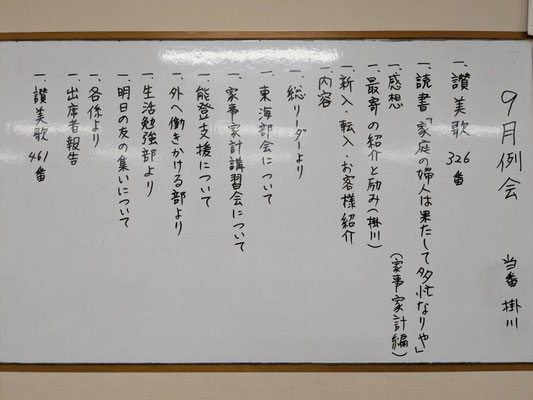 9月例会 当番 掛川
一、讃美歌 326番
一、読書「家庭の婦人は果たして多忙なりや」
(家事家計編)
一、感想
一、最寄の紹介と励み(掛川)
一、新入・転入・お客様紹介
一、内容
一、総リーダーより
一、東海部会について
一、家事家計講習会について
一、能登支援について
一、外へ働きかける部より
一、生活勉強部より
一、明日の友の集いについて
一、各係より
一、出席者報告
一、讃美歌 461番